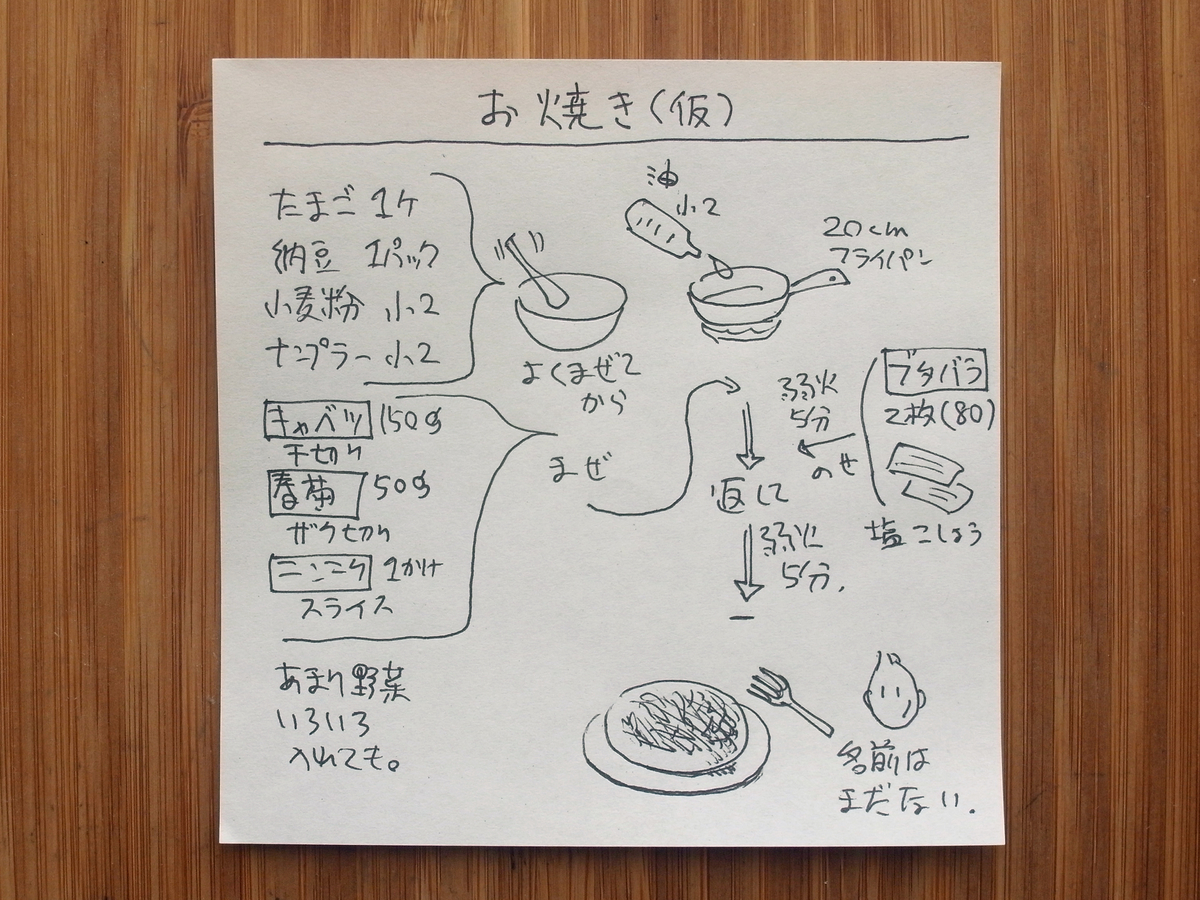 お焼き(仮)
たまご 1ケ
納豆 1パック
小麦粉 小2
ナンプラー 小2
よくまぜて
から
キャベツ 150g
千切り
春菊 50g
ザク切り
ニンニク 1かけ
スライス
まぜ
あまり野菜
いろいろ
入れても。
油
小2
20cm
フライパン
弱火
5分
ブタバラ
2枚(80)
のせ
塩こしょう
返して
弱火
5分.
名前は
まだない.